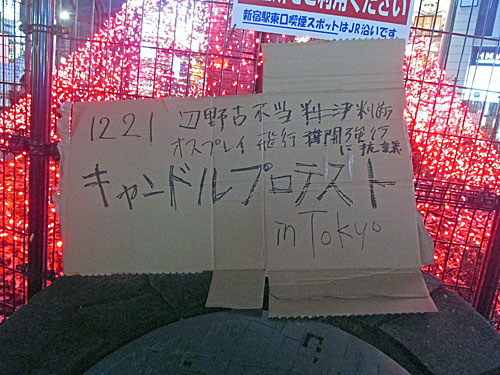 をご利用ください
新宿駅東口喫煙スポットはJR沿いです。
1221 辺野古不当判決
オスプレイ飛行再開強行
に抗議
キャンドルプロテスト
in Tokyo